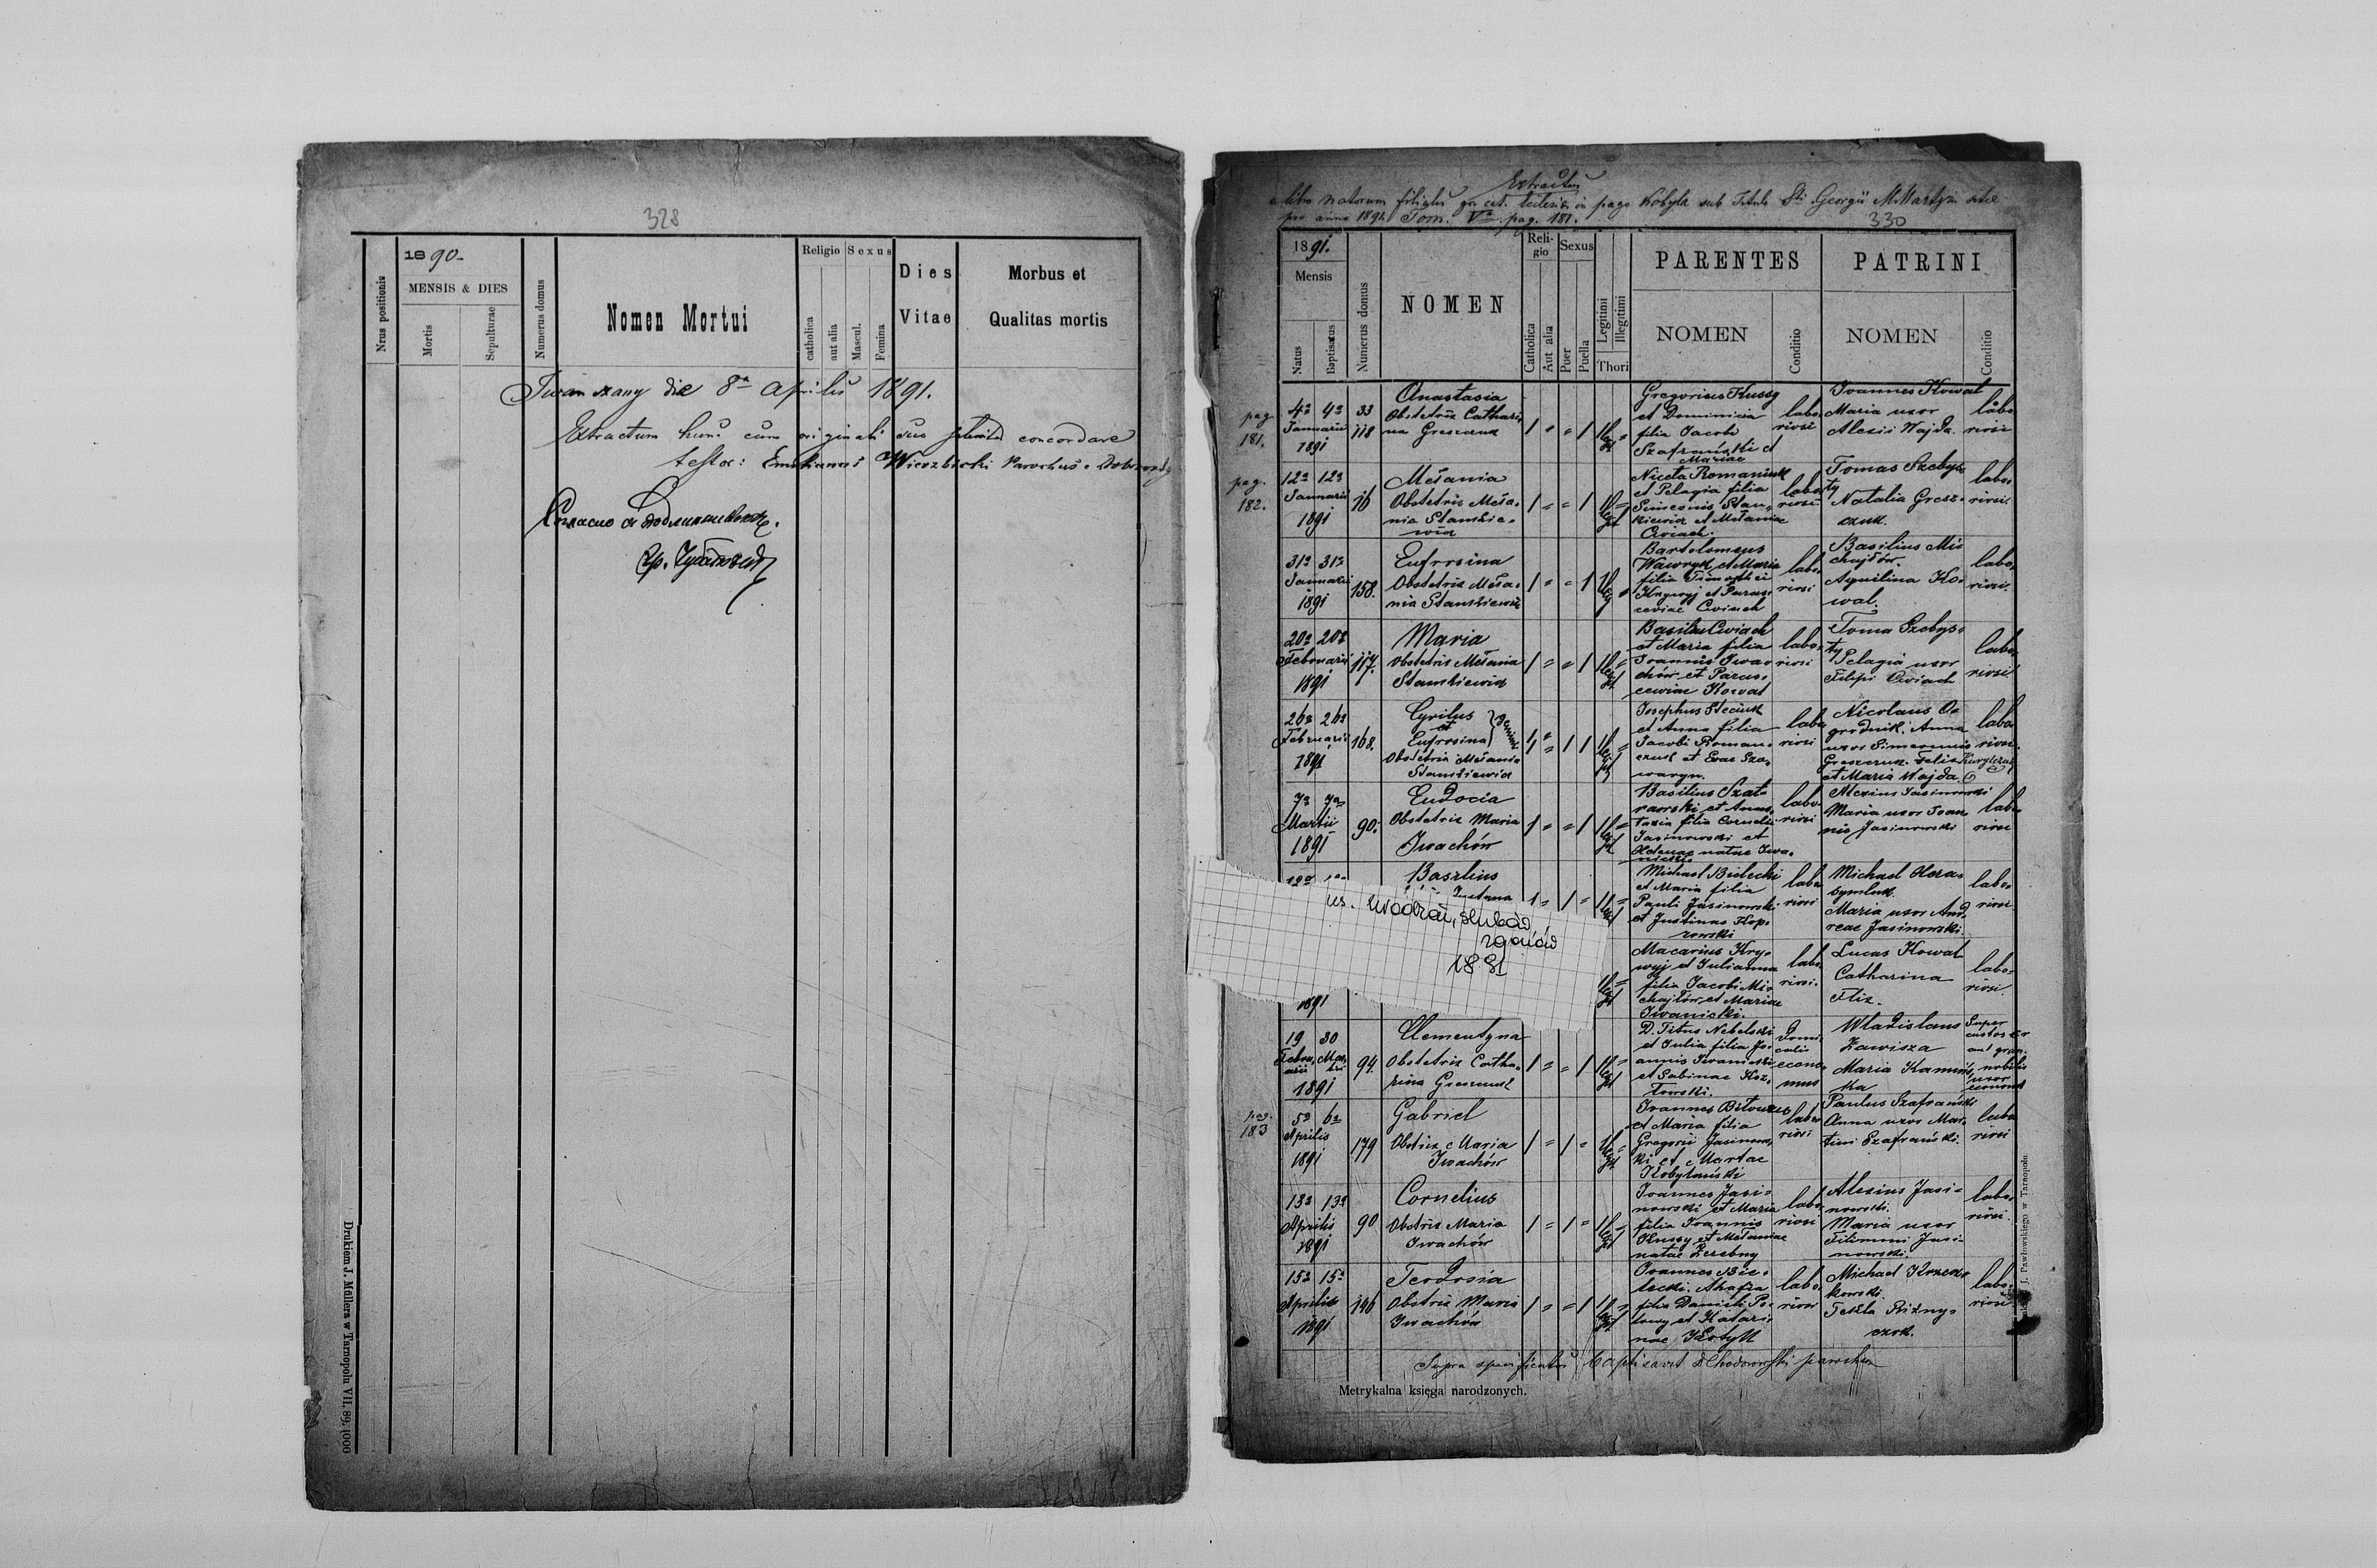 328
1890
MENSIS & DIES
Nrus positionis
Mortis
Sepulturae
Numerus domus
Nomen Mortui
Religio
Sexus
catholica
aut alia
Mascul.
Femina
Dies
Vitae
Morbus et
Qualitas mortis
die 8va Aprilis 1891.
Extractum hunc cum originali suo concordare
testor: Emilianus Wierzbicki Parochus
Drukiem J. Müllera w Tarnopolu VII. 89. 1000
Extractus
libro natorum filialis gr. cat. Ecclesiae in pago Kobyla sub Titulo Sti Georgii M. Martyris
pro anno 1891. Tom. V. pag. 181.
330
1891.
Mensis
Natus
Baptisatus
Numerus domus
NOMEN
Religio
Catholica
Aut alia
Sexus
Puer
Puella
Legitimi
Illegitimi
Thori
PARENTES
NOMEN
Conditio
PATRINI
NOMEN
Conditio
pag. 181.
4a 4a
Januarii
1891
33
118
Anastasia
Obstetrix Cathari-
na Greszczuk
Gregorius Kussy
filia Jacobi
Szafrański et
Mariae
laboriosi
Joannes Kowal
Maria uxor
Alexii Wajda.
laboriosi
pag. 182.
12a 12a
Januarii
1891
16
Melania
Obstetrix Mela-
nia Stankie-
wicz
Niceta Romaniuk
et Pelagia filia
Simeonis Stan-
kiewicz et Melaniae
Cwiach.
laboriosi
Tomas Szebys-
ty
Natalia Gresz-
czuk.
laboriosi
31a 31a
Januarii
1891
158.
Eufrosina
Obstetrix Mela-
nia Stankiewicz
Bartolomeus
Wawryk et Maria
filia Timothei
Krywyj et Paras-
ceviae Cwiach
laboriosi
Basilius Mi-
chajłów.
Aquilina Ko-
wal.
laboriosi
20a 20a
Februarii
1891
117.
Maria
Obstetrix Melania
Stankiewicz
Basilius Cwiach
et Maria filia
Joannis Iwa-
chów et Paras-
ceviae Kowal
laboriosi
Toma Szebys-
ty
Pelagia uxor
Filipi Cwiach
laboriosi
26a 26a
Februarii
1891
168.
Cyrilus
et
Eufrosina
gemini
Obstetrix Melania
Stankiewicz
Josephus Steciuk
et Anna filia
Jacobi Roman-
czuk et Evae Sza-
waryn.
laboriosi
Nicolaus O-
grodnik. Anna
uxor Simeonis
Greszczuk. Felix
et Maria Wajda.
laboriosi
7a 7a
Martii
1891
90.
Eudocia
Obstetrix Maria
Iwachów
Basilius Szat-
rawski et Anas-
tasia filia Cornelii
Jasinowski et
Helenae natae Iwa-
nicki.
laboriosi
Alexius Jasinowski
Maria uxor Joan-
nis Jasinowski
laboriosi
Basilius
Michael Bielecki
et Maria filia
Pauli Jasinowski
et Justinae Kop-
rowski
laboriosi
Michael Hera-
symluk.
Maria uxor And-
reae Jasinowski.
laboriosi
us. urodzeń, ślubów
zgonów
1891
1891
Macarius Kry-
wyj et Julianna
filia Jacobi Mi-
chajłów et Mariae
Iwanicki.
laboriosi.
Lucas Kowal
Catharina
Fliz.
laboriosi.
19 30
Februarii Martii
1891
94.
Clementyna
Obstetrix Catha-
rina Greszczuk
D. Titus Nebelski
et Julia filia Jo-
annis Iwanicki
et Sabinae Koz-
łowski.
Wladislaus
Zawisza
Maria Kamins-
ka
pag. 183
5a 6a
Aprilis
1891
179
Gabriel
Obstrix Maria
Iwachów
et Maria filia
Gregorii Jasinows-
ki et Martae
Kobylański
laboriosi
Paulus Szafrański
Anna uxor Mar-
tini Szafrański.
laboriosi
13a 13a
Aprilis
1891
90
Cornelius
Obstrix Maria
Iwachów
Joannes Jasi-
nowski et Maria
filia Joannis
Kussy et Melaniae
natae Zerebny
laboriosi
Alexius Jasi-
nowski.
Maria uxor
Filimoni Jasi-
nowski.
laboriosi.
15a 15a
Aprilis
1891
146
Teodosia
Obstrix Maria
Iwachów
Joannes Bie-
lecki. Ahafia
filia Danieli
et Katari-
nae
laboriosi
Michael Krzecz-
kowski.
Tekla
laboriosi
Supra specificatos baptisavit Chodorowski parochus
Metrykalna księga narodzonych.
J. Pawłowskiego w Tarnopolu.